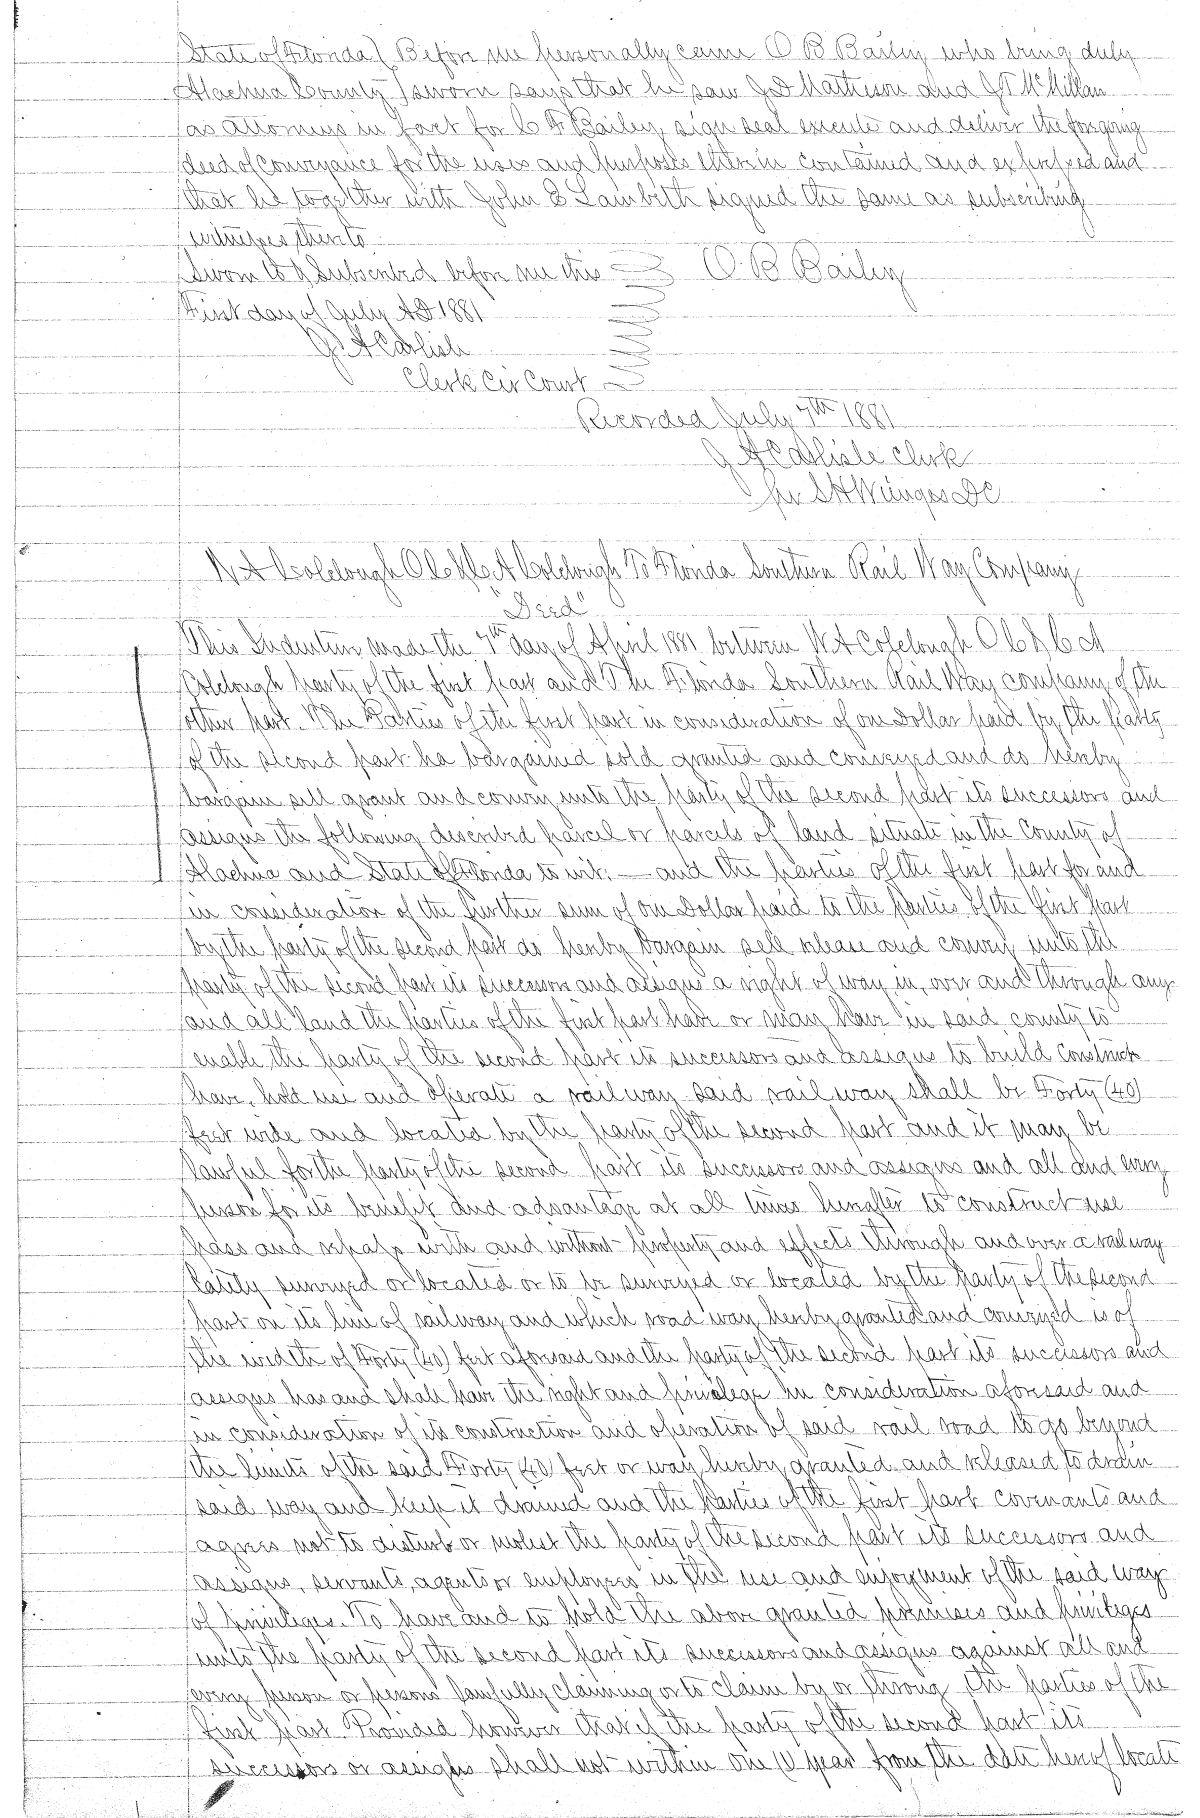 State of Florida } Before me personally came O B Bailey who being duly
Alachua County } sworn says that he saw J D Matheson and J T McMillan
as attorneys in fact for C F Bailey sign seal execute and deliver the foregoing
deed of conveyance for the uses and purposes therein contained and expressed and
that he together with John E Lambeth signed the same as subscribing
witnesses thereto
Sworn to & Subscribed before me this O B Bailey
First day of July AD 1881
J A Carlisle
Clerk Cir Court
Recorded July 7th 1881
J A Carlisle Clerk
per S H Wienges DC
W A Colclough O C & C A Colclough To Florida Southern Rail Way Company
"Deed"
This Indenture made the 7th day of April 1881 between W A Colclough O C & C A
Colclough party of the first part and The Florida Southern Rail Way company of the
other part. The Parties of the first part in consideration of one Dollar paid by the Party
of the second part ha bargained sold granted and conveyed and do hereby
bargain sell grant and convey unto the party of the second part its successors and
assigns the following described parcel or parcels of land situate in the County of
Alachua and State of Florida to wit: — and the parties of the first part for and
in consideration of the further sum of one Dollar paid to the parties of the first part
by the party of the second part do hereby bargain sell release and convey unto the
party of the second part its successors and assigns a right of way in, over and through any
and all land the parties of the first part have or may have in said county to
enable the party of the second part its successors and assigns to build construct
have, hold use and operate a railway said railway shall be Forty (40)
feet wide and located by the party of the second part and it may be
lawful for the party of the second part its successors and assigns and all and every
person for its benefit and advantage at all times hereafter to construct use
pass and repass with and without property and effects through and over a railway
lately surveyed or located or to be surveyed or located by the party of the second
part on its line of railway and which road way hereby granted and conveyed is of
the width of Forty (40) feet aforesaid and the party of the second part its successors and
assigns has and shall have the right and privilege in consideration aforesaid and
in consideration of its construction and operation of said rail road to go beyond
the limits of the said Forty (40) feet or way hereby granted and released to drain
said way and keep it drained and the parties of the first part covenants and
agrees not to disturb or molest the party of the second part its successors and
assigns, servants, agents or employees in the use and enjoyment of the said way
of privileges. To have and to hold the above granted premises and privileges
unto the party of the second part its successors and assigns against all and
every person or persons lawfully claiming or to claim by or throug the parties of the
first part. Provided however that if the party of the second part its
successors or assigns shall not within one (1) year from the date hereof locate